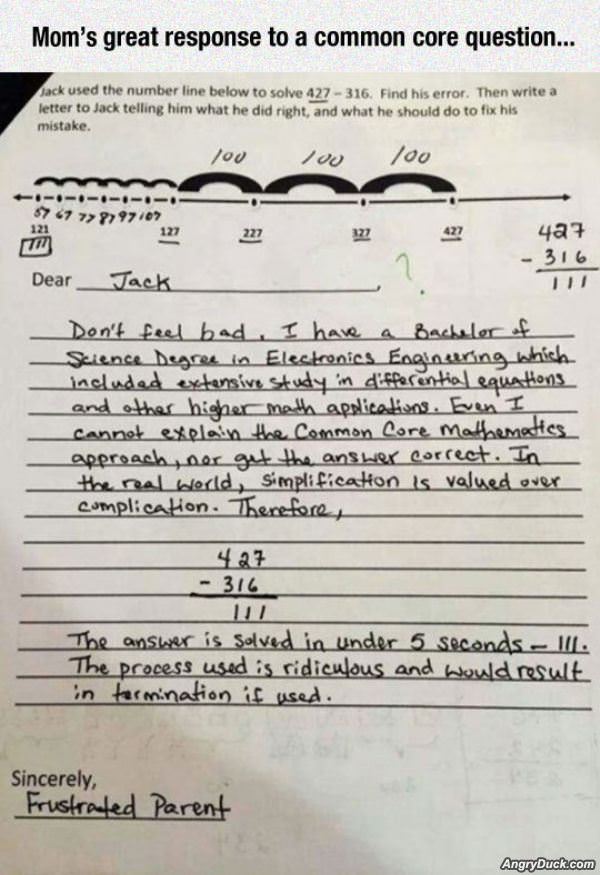 Mom's great response to a common core question...
Jack used the number line below to solve 427 - 316. Find his error. Then write a
letter to Jack telling him what he did right, and what he should do to fix his
mistake.
100 100 100
57 67 77 87 97 107
121 127 227 327 427
111
427
- 316
111
?
Dear Jack
Don't feel bad. I have a Bachelor of
Science Degree in Electronics Engineering which
included extensive study in differential equations
and other higher math applications. Even I
cannot explain the Common Core Mathematics
approach, nor get the answer correct. In
the real world, simplification is valued over
complication. Therefore,
427
- 316
111
The answer is solved in under 5 seconds - 111.
The process used is ridiculous and would result
in termination if used.
Sincerely,
Frustrated Parent
AngryDuck.com